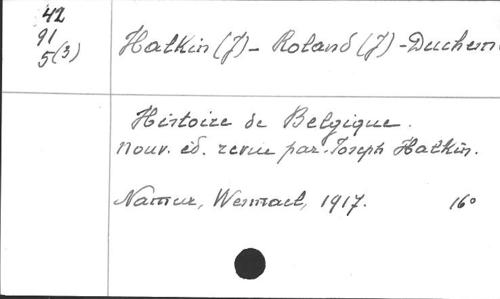 42
91
5(3)
Halkin (J) - Roland (J) - Duchesn
Histoire de Belgique.
nouv. éd. revue par Joseph Halkin.
Namur, Wesmael, 1917. 16°